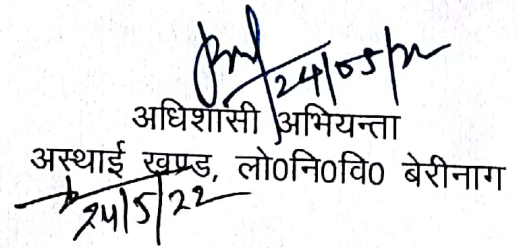 24/05/22
अधिशासी अभियन्ता
अस्थाई खण्ड, लो०नि०वि० बेरीनाग
24/5/22